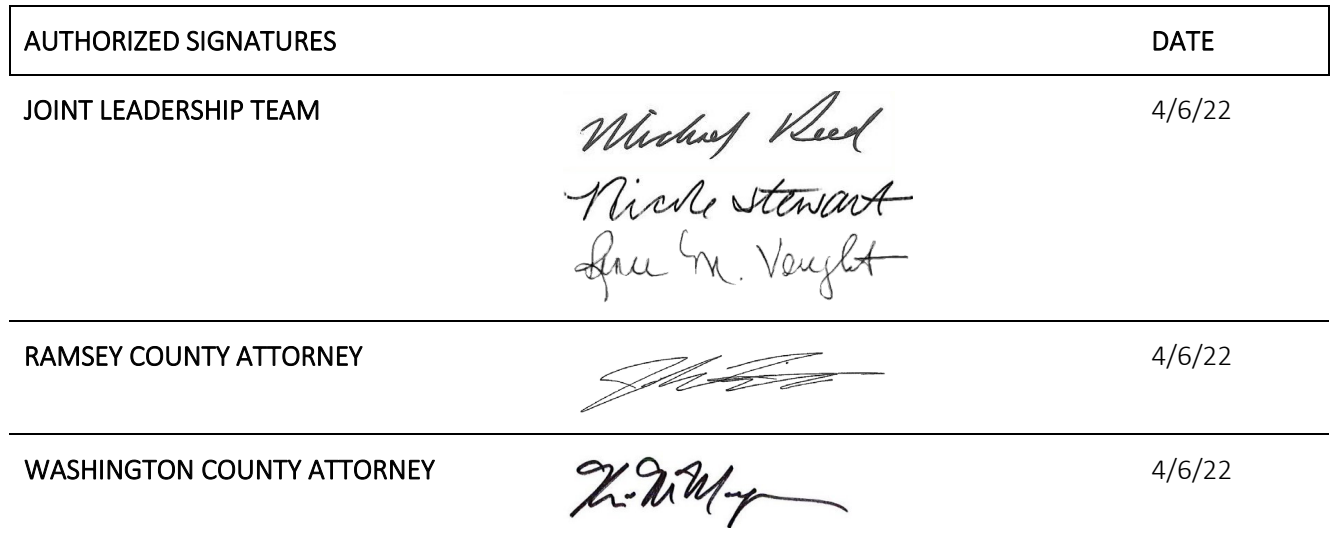 AUTHORIZED SIGNATURES DATE
JOINT LEADERSHIP TEAM Michael Reed 4/6/22
Nicole Stewart
M. Vaught
RAMSEY COUNTY ATTORNEY 4/6/22
WASHINGTON COUNTY ATTORNEY 4/6/22